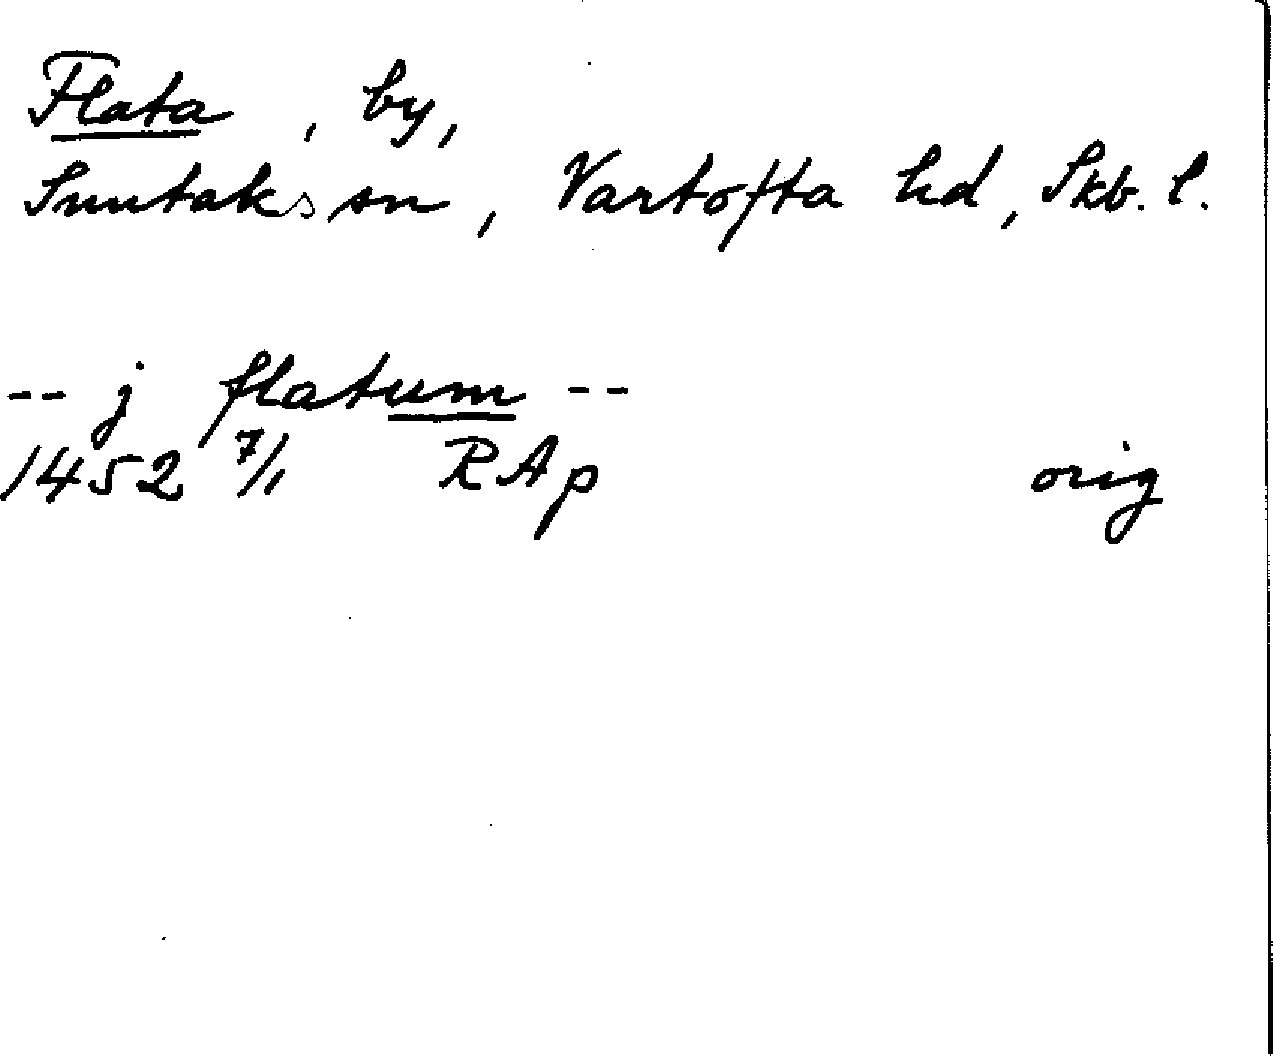 Flata, by,
Suntaks sn, Vartofta hd, Skb. l.
-- j flatum --
1452 7/1 RAp orig